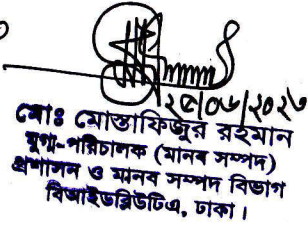 ২৫/০৬/২০২৩
মোঃ মোস্তাফিজুর রহমান
যুগ্ম-পরিচালক (মানব সম্পদ)
প্রশাসন ও মানব সম্পদ বিভাগ
বিআইডব্লিউটিএ, ঢাকা।